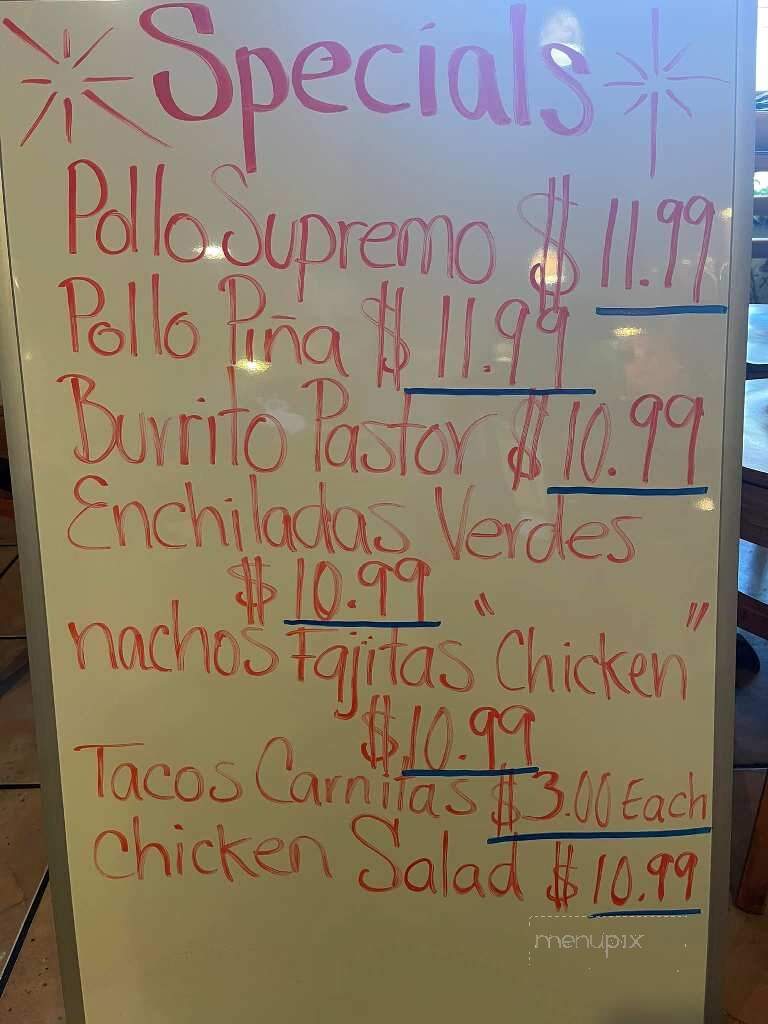 Specials
Pollo Supremo $ 11.99
Pollo Piña $ 11.99
Burrito Pastor $ 10.99
Enchiladas Verdes
$ 10.99
nachos Fajitas "Chicken"
$10.99
Tacos Carnitas $3.00 Each
Chicken Salad $10.99
menupix